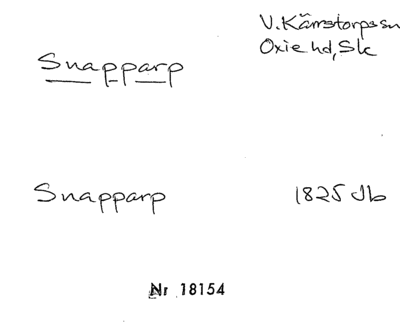 V. Kärrstorps sn
Oxie hd, Sk
Snapparp
Snapparp 1825 Jb
Nr 18154